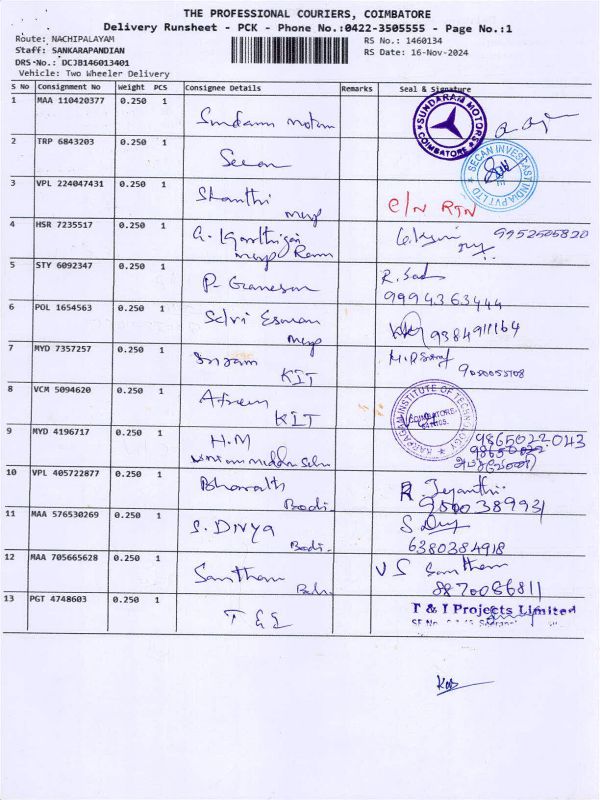 THE PROFESSIONAL COURIERS, COIMBATORE
Delivery Runsheet - PCK - Phone No.:0422-3505555 - Page No.:1
Route: NACHIPALAYAM
RS No.: 1460134
Staff: SANKARAPANDIAN
RS Date: 16-Nov-2024
DRS-No.: DCJB146013401
Vehicle: Two Wheeler Delivery
S No Consignment No Weight PCS Consignee Details Remarks Seal & Signature
1 MAA 110420377 0.250 1 Sundaram motors SUNDARAM MOTORS COIMBATORE
2 TRP 6843203 0.250 1 Secan SECAN INVESCAST INDIA PVT LTD
3 VPL 224047431 0.250 1 Shanthi C/N RTN
4 HSR 7235517 0.250 1 9952505820
5 STY 6092347 0.250 1 P. Ganesan
9994363444
6 POL 1654563 0.250 1 Selvi 9384911164
7 MYD 7357257 0.250 1 Sriram KIT
8 VCM 5094620 0.250 1 KIT KARPAGAM INSTITUTE OF TECHNOLOGY COIMBATORE
9 MYD 4196717 0.250 1 H.M 9865022043
10 VPL 405722877 0.250 1 Bharath R. Jeyanthi
11 MAA 576530269 0.250 1 S. DIVYA
6380384918
12 MAA 705665628 0.250 1 Santham V S Santham
8870086811
13 PGT 4748603 0.250 1 T & I T & I Projects Limited